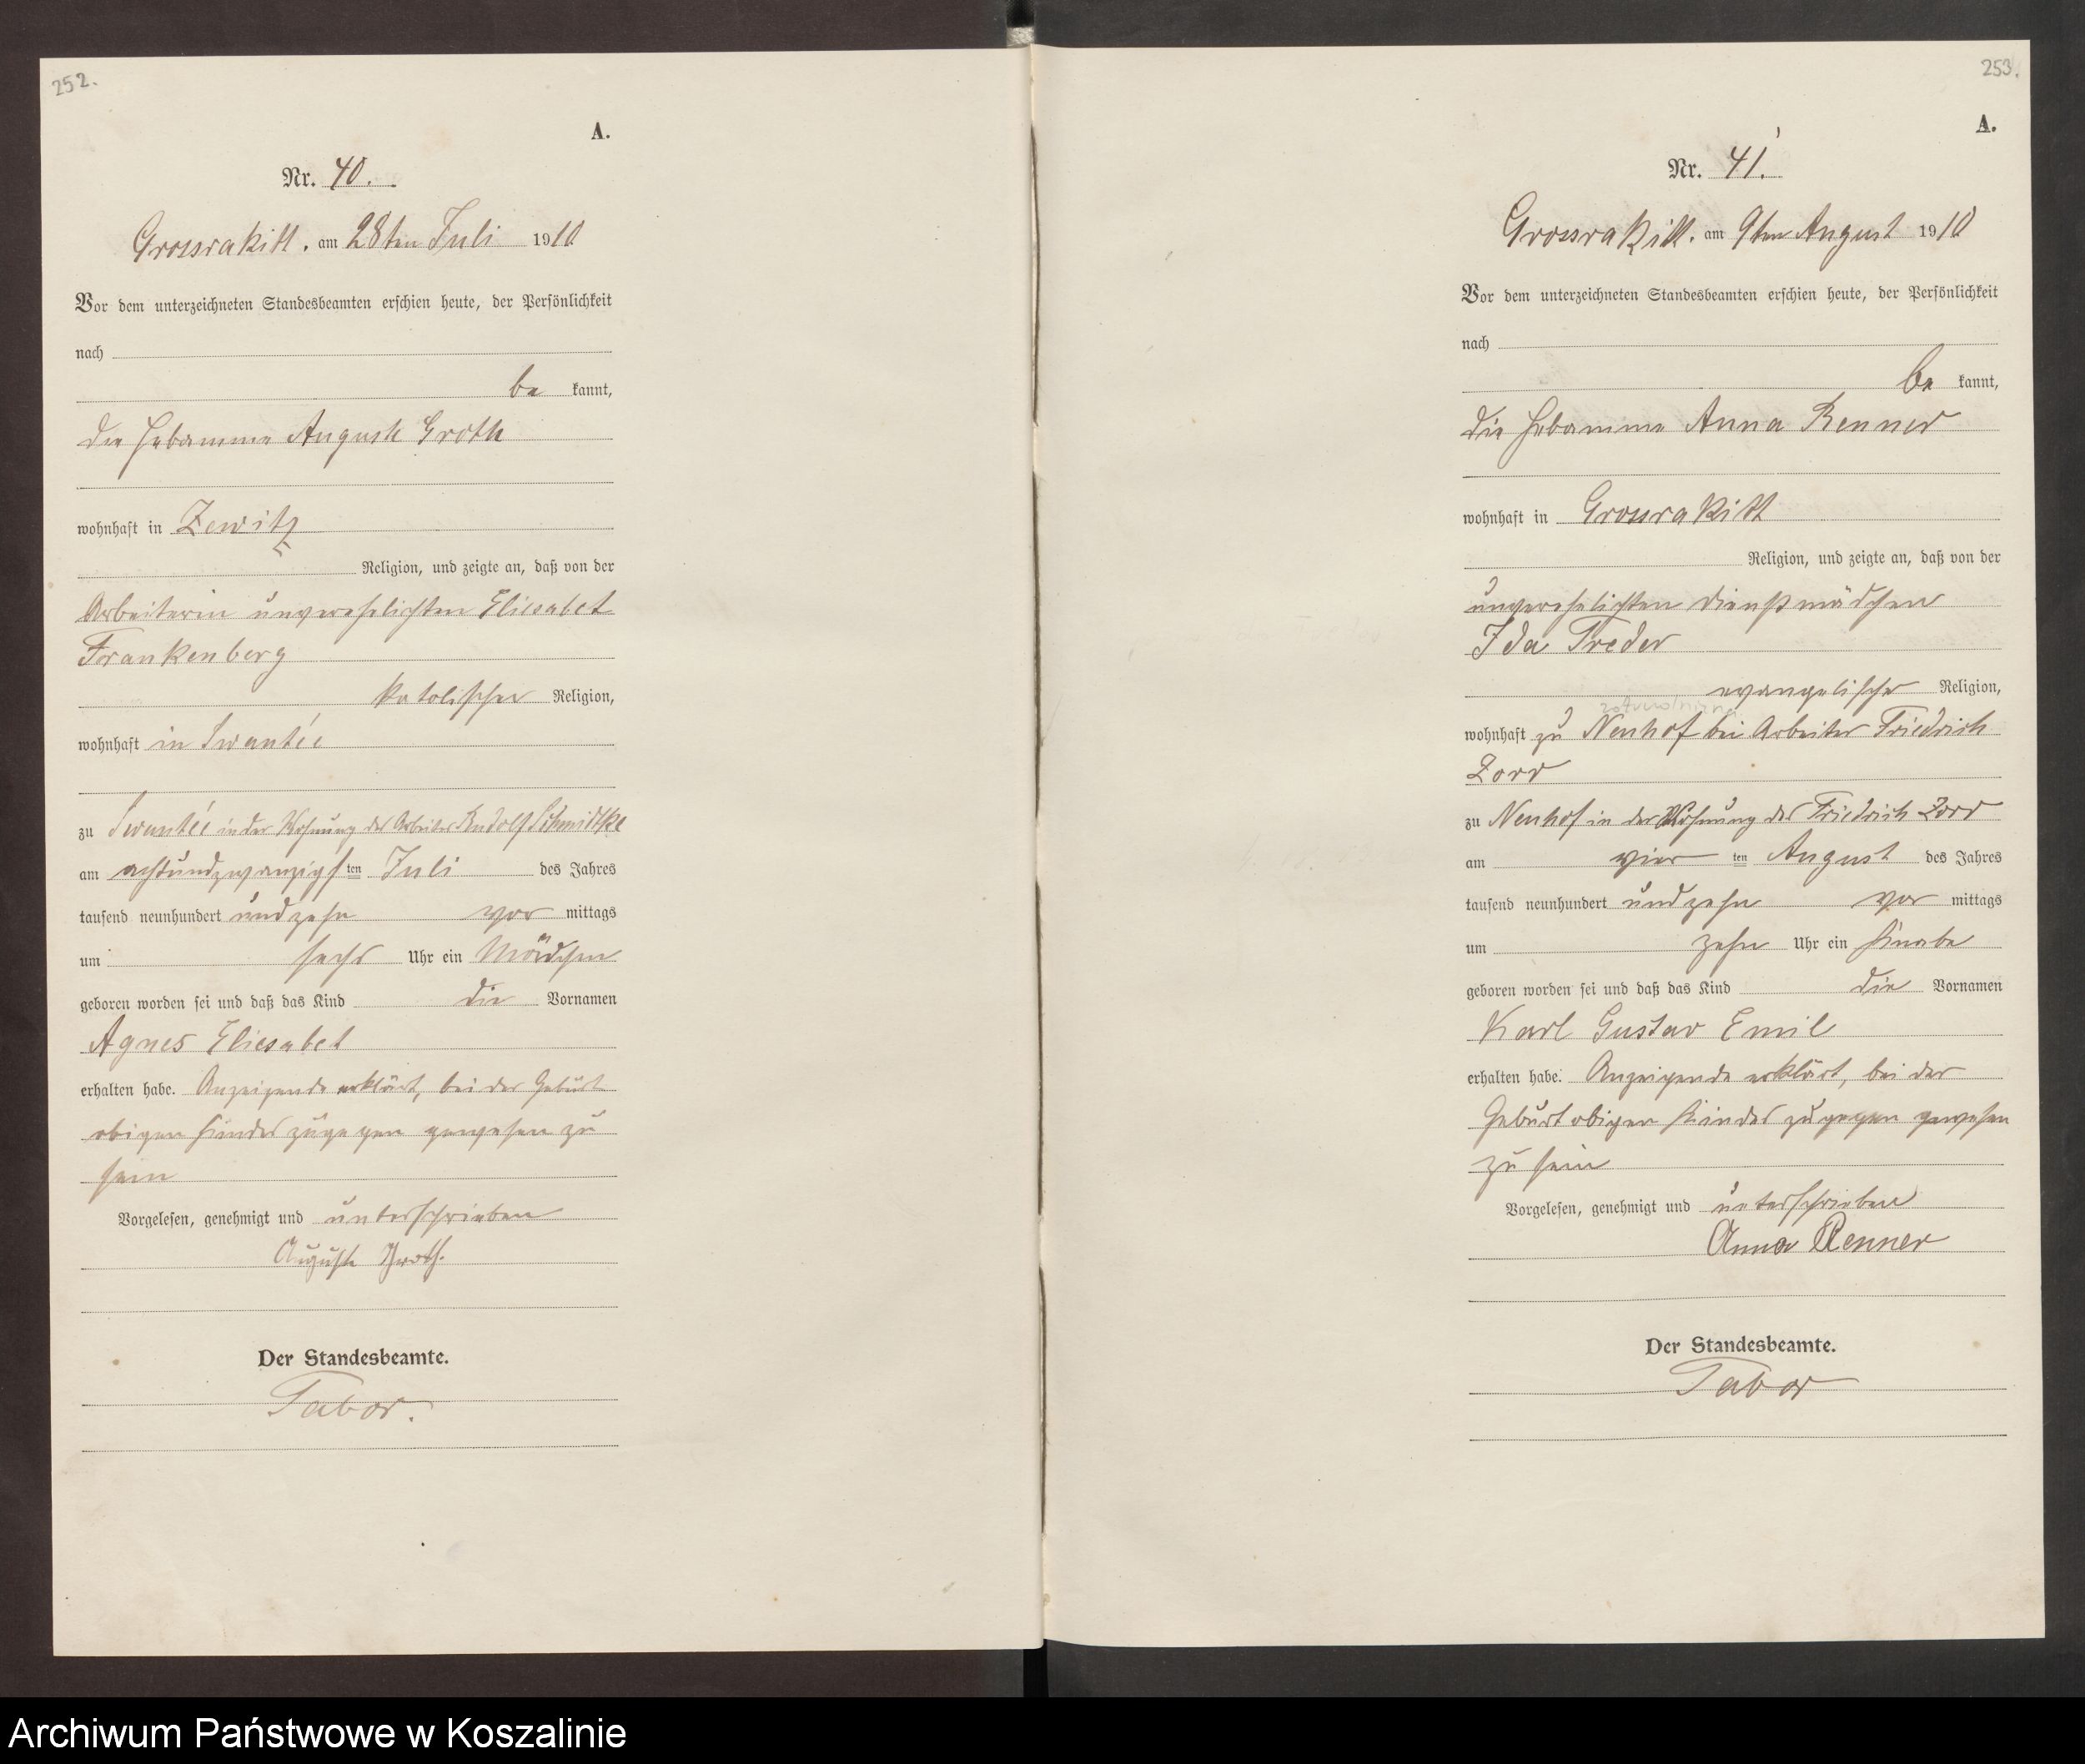 252.
A.
Nr. 40.
Grossrakitt. am 28ten Juli 1910
Vor dem unterzeichneten Standesbeamten erschien heute, der Persönlichkeit
nach
be kannt,
die Hebamme Auguste Groth
wohnhaft in Zewitz
Religion, und zeigte an, daß von der
Arbeiterin unverehelichten Eliesabet
Frankenberg
katolischer Religion,
wohnhaft in Swantée
zu Swantée in der Wohnung des Arbeiter Rudolf Schmidtke
am achtundzwanzigsten Juli des Jahres
tausend neunhundert und zehn vor mittags
um sechs Uhr ein Mädchen
geboren worden sei und daß das Kind die Vornamen
Agnes Eliesabet
erhalten habe. Anzeigende erklärt, bei der Geburt
obigen Kindes zugegen gewesen zu
sein
Vorgelesen, genehmigt und unterschrieben
Auguste Groth.
Der Standesbeamte.
Tabor.
253.
A.
Nr. 41.
Grossrakitt. am 9ten August 1910
Vor dem unterzeichneten Standesbeamten erschien heute, der Persönlichkeit
nach
be kannt,
die Hebamme Anna Renner
wohnhaft in Grossrakitt
Religion, und zeigte an, daß von der
unverehelichten Dienstmädchen
Ida Treder
evangelischer Religion,
wohnhaft zu Neuhof bei Arbeiter Friedrich
Zorr
zu Neuhof in der Wohnung des Friedrich Zorr
am vier ten August des Jahres
tausend neunhundert und zehn vor mittags
um zehn Uhr ein Knabe
geboren worden sei und daß das Kind die Vornamen
Karl Gustav Emil
erhalten habe. Anzeigende erklärt, bei der
Geburt obigen Kindes zugegen gewesen
zu sein
Vorgelesen, genehmigt und unterschrieben
Anna Renner
Der Standesbeamte.
Tabor
Archiwum Państwowe w Koszalinie